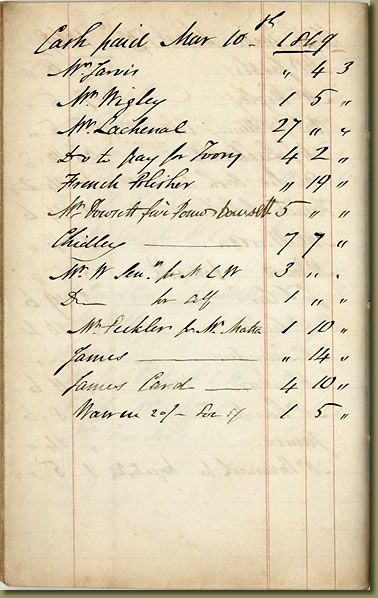 Cash paid Mar 10th 1849
Mrs Jarvis " 4 3
Mr Wigley 1 5 "
Mr Lachenal 27 " "
Do to pay for Ivory 4 2 "
French Polisher " 19 "
Mr Dowsett five Pound 5 " "
Chidley 7 7 "
Mr W Senr for M C W 3 " "
Do for alf 1 " "
Mr Eickler for Mr 1 10 "
James " 14 "
James Card 4 10 "
Warren 20/- 5/ 1 5 "